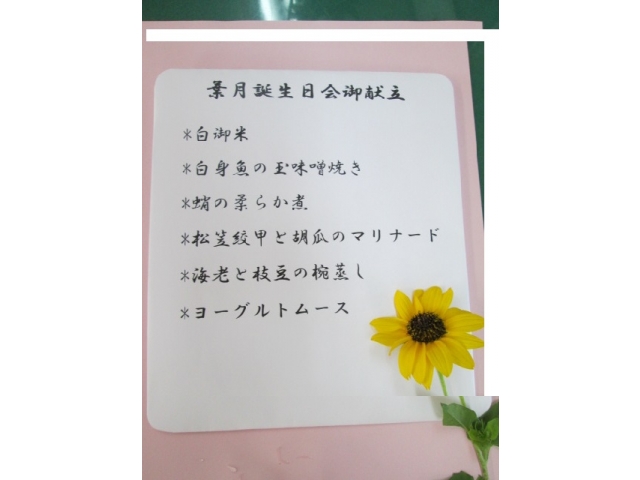 葉月誕生日会御献立
*白御米
*白身魚の玉味噌焼き
*蛸の柔らか煮
*松笠紋甲と胡瓜のマリナード
*海老と枝豆の椀蒸し
*ヨーグルトムース